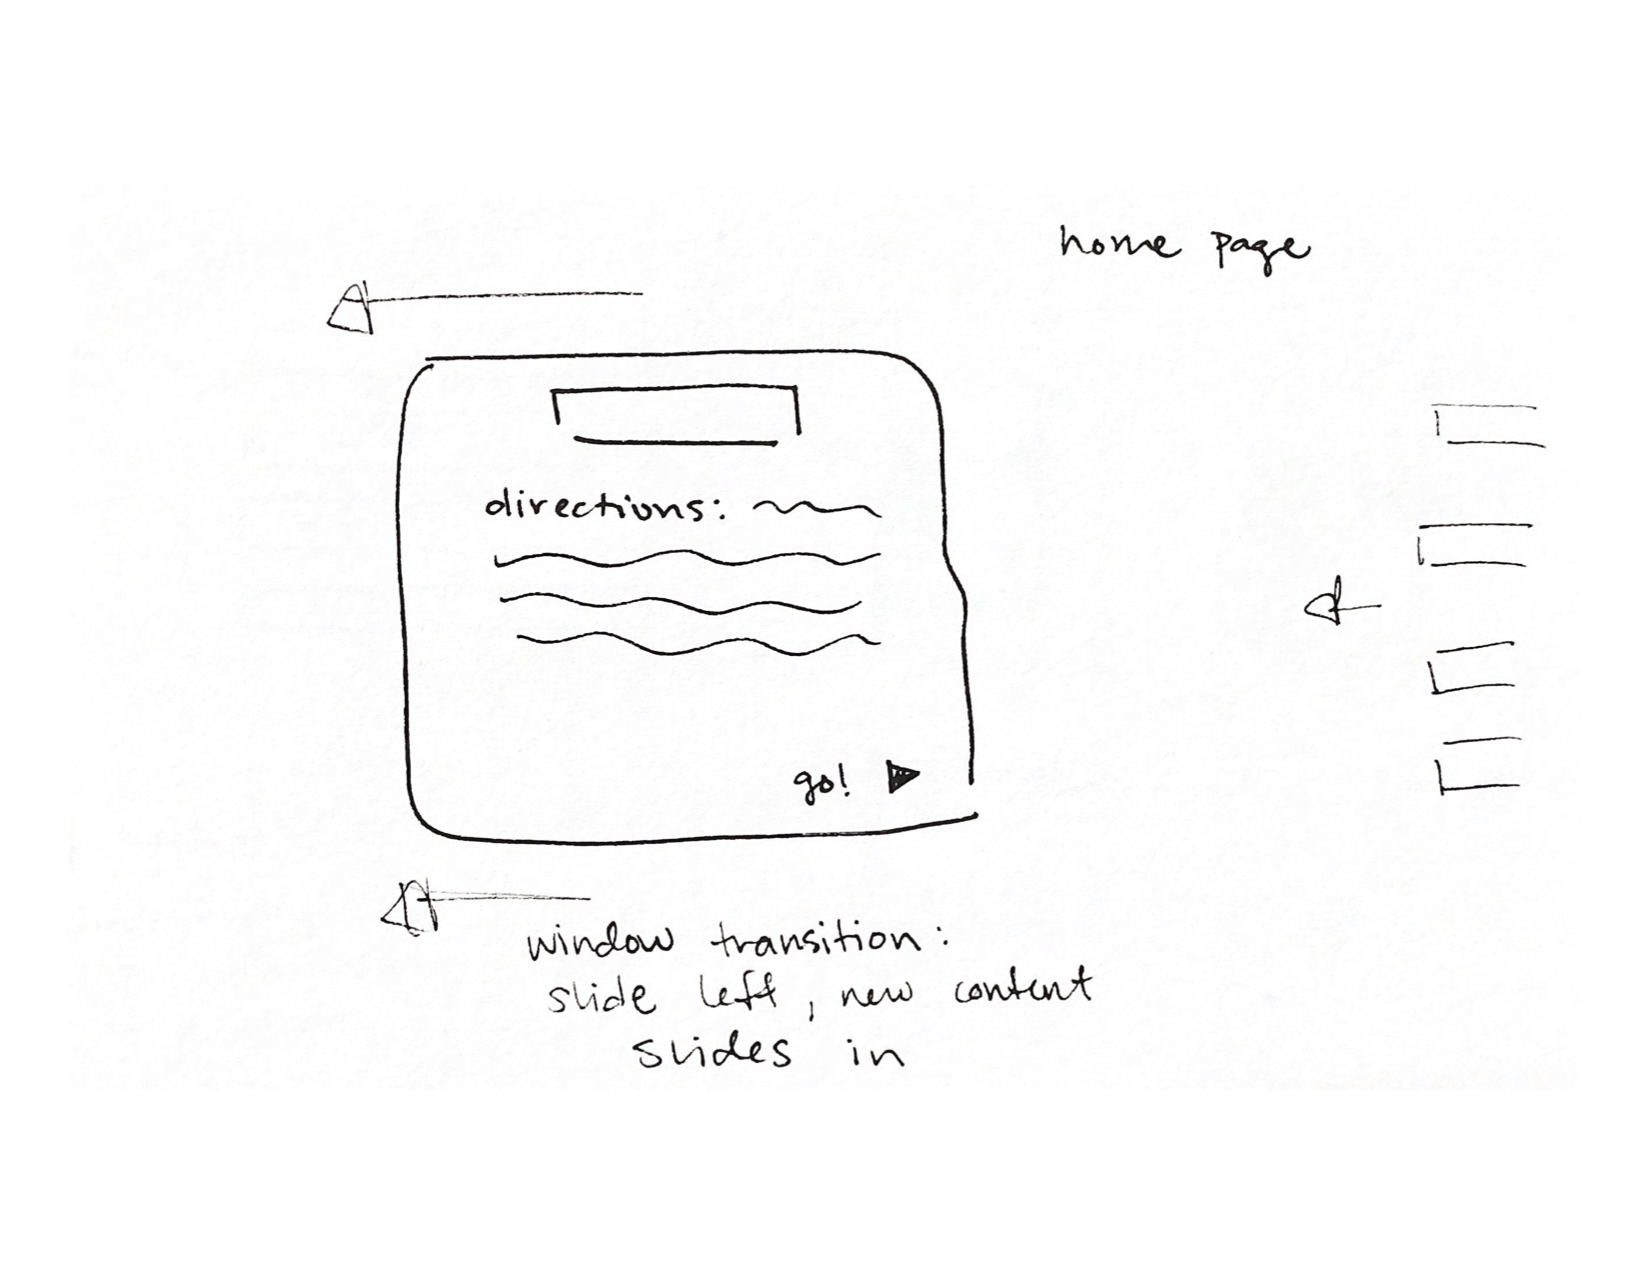 home page
directions:
go!
window transition:
slide left, new content
slides in